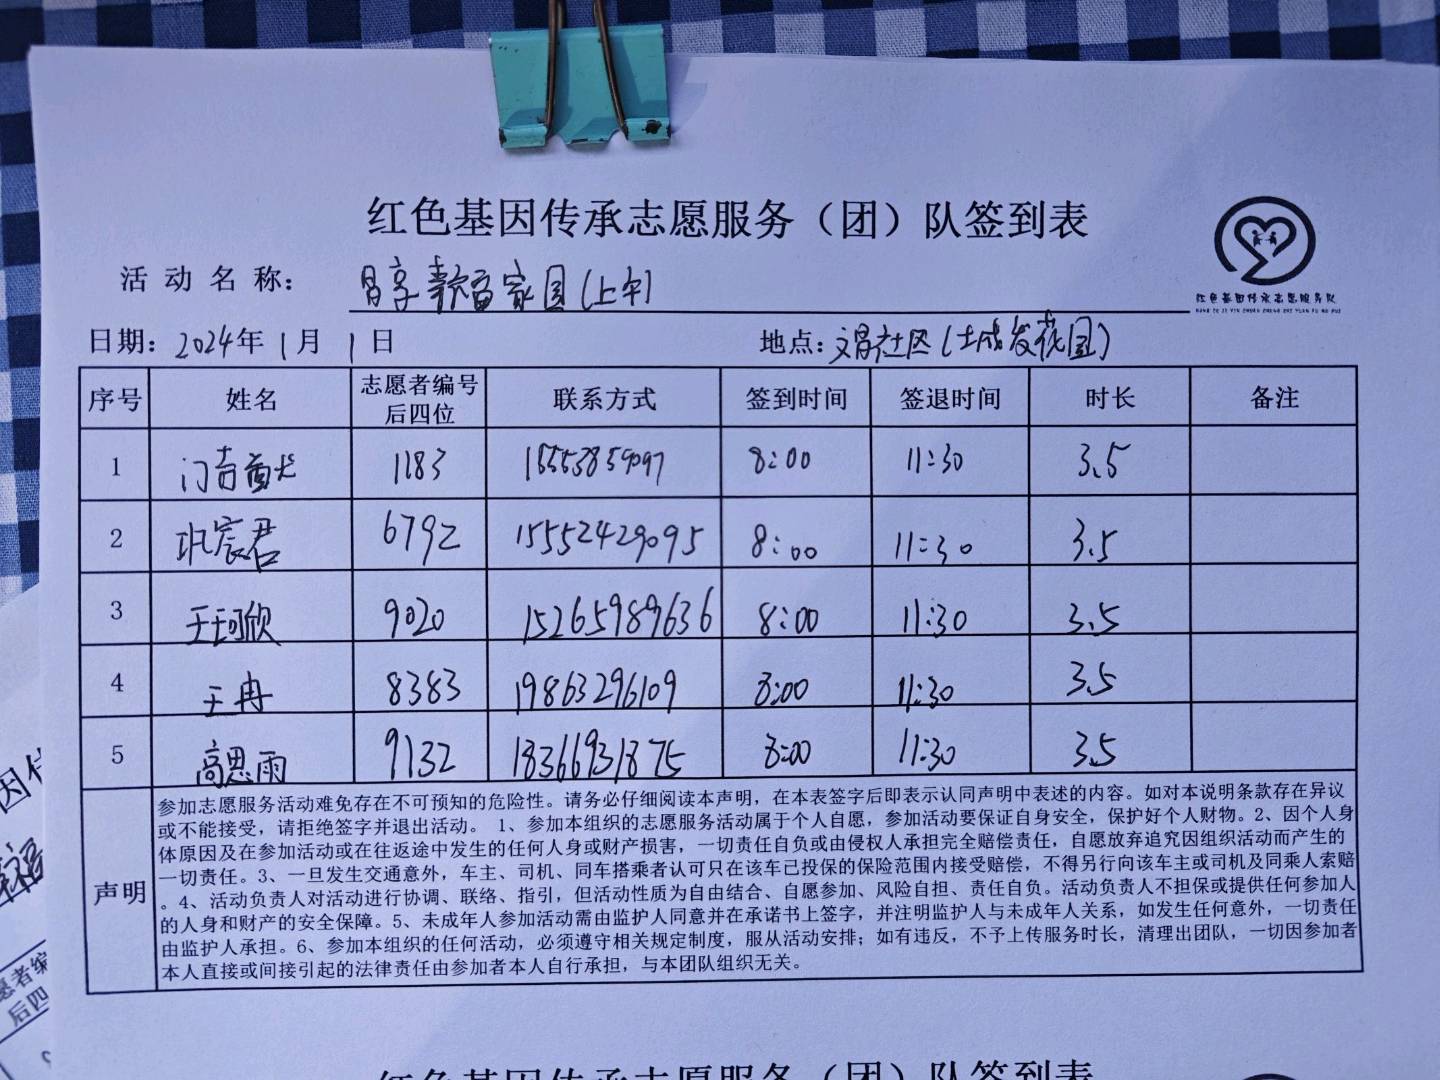 红色基因传承志愿服务（团）队签到表
红色基因传承志愿服务队
HONG SE JI YIN CHUAN CHENG ZHI YUAN FU WU DUI
活 动 名 称：家园(上午)
日期：2024年 1月 1日 地点：文昌社区(土成发花园)
序号 姓名 志愿者编号后四位 联系方式 签到时间 签退时间 时长 备注
1 1183 15553859097 8:00 11:30 3.5
2 巩宸君 6792 15552429095 8:00 11:30 3.5
3 王珂欣 9020 15265989636 8:00 11:30 3.5
4 王冉 8383 19863296109 8:00 11:30 3.5
5 高思雨 9132 18366931875 8:00 11:30 3.5
声明
参加志愿服务活动难免存在不可预知的危险性。请务必仔细阅读本声明，在本表签字后即表示认同声明中表述的内容。如对本说明条款存在异议
或不能接受，请拒绝签字并退出活动。 1、参加本组织的志愿服务活动属于个人自愿，参加活动要保证自身安全，保护好个人财物。2、因个人身
体原因及在参加活动或在往返途中发生的任何人身或财产损害，一切责任自负或由侵权人承担完全赔偿责任，自愿放弃追究因组织活动而产生的
一切责任。3、一旦发生交通意外，车主、司机、同车搭乘者认可只在该车已投保的保险范围内接受赔偿，不得另行向该车主或司机及同乘人索赔
。4、活动负责人对活动进行协调、联络、指引，但活动性质为自由结合、自愿参加、风险自担、责任自负。活动负责人不担保或提供任何参加人
的人身和财产的安全保障。5、未成年人参加活动需由监护人同意并在承诺书上签字，并注明监护人与未成年人关系，如发生任何意外，一切责任
由监护人承担。6、参加本组织的任何活动，必须遵守相关规定制度，服从活动安排；如有违反，不予上传服务时长，清理出团队，一切因参加者
本人直接或间接引起的法律责任由参加者本人自行承担，与本团队组织无关。
红色基因传承志愿服务（团）队签到表
愿者编
后四